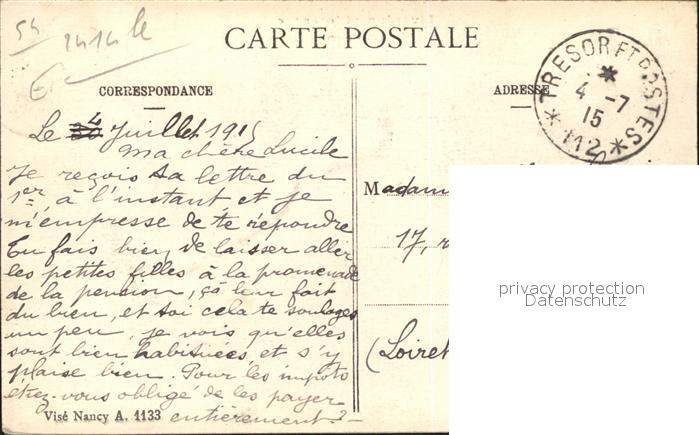 54
CARTE POSTALE
CORRESPONDANCE
ADRESSE
TRESOR ET POSTES
4 -7
15
* 112 *
Le 4 Juillet 1915
Ma chère Lucile
Je reçois ta lettre du
1er à l'instant et je
m'empresse de te répondre
Tu fais bien de laisser aller
les petites filles à la promenade
de la pension, ça leur fait
du bien, et toi cela te soulages
un peu, je vois qu'elles
sont bien habituées et s'y
plaise bien. Pour les impots
étiez-vous obligé de les payer
entièrement?
Visé Nancy A. 1133
Madam
17, r
(Loiret
privacy protection
Datenschutz